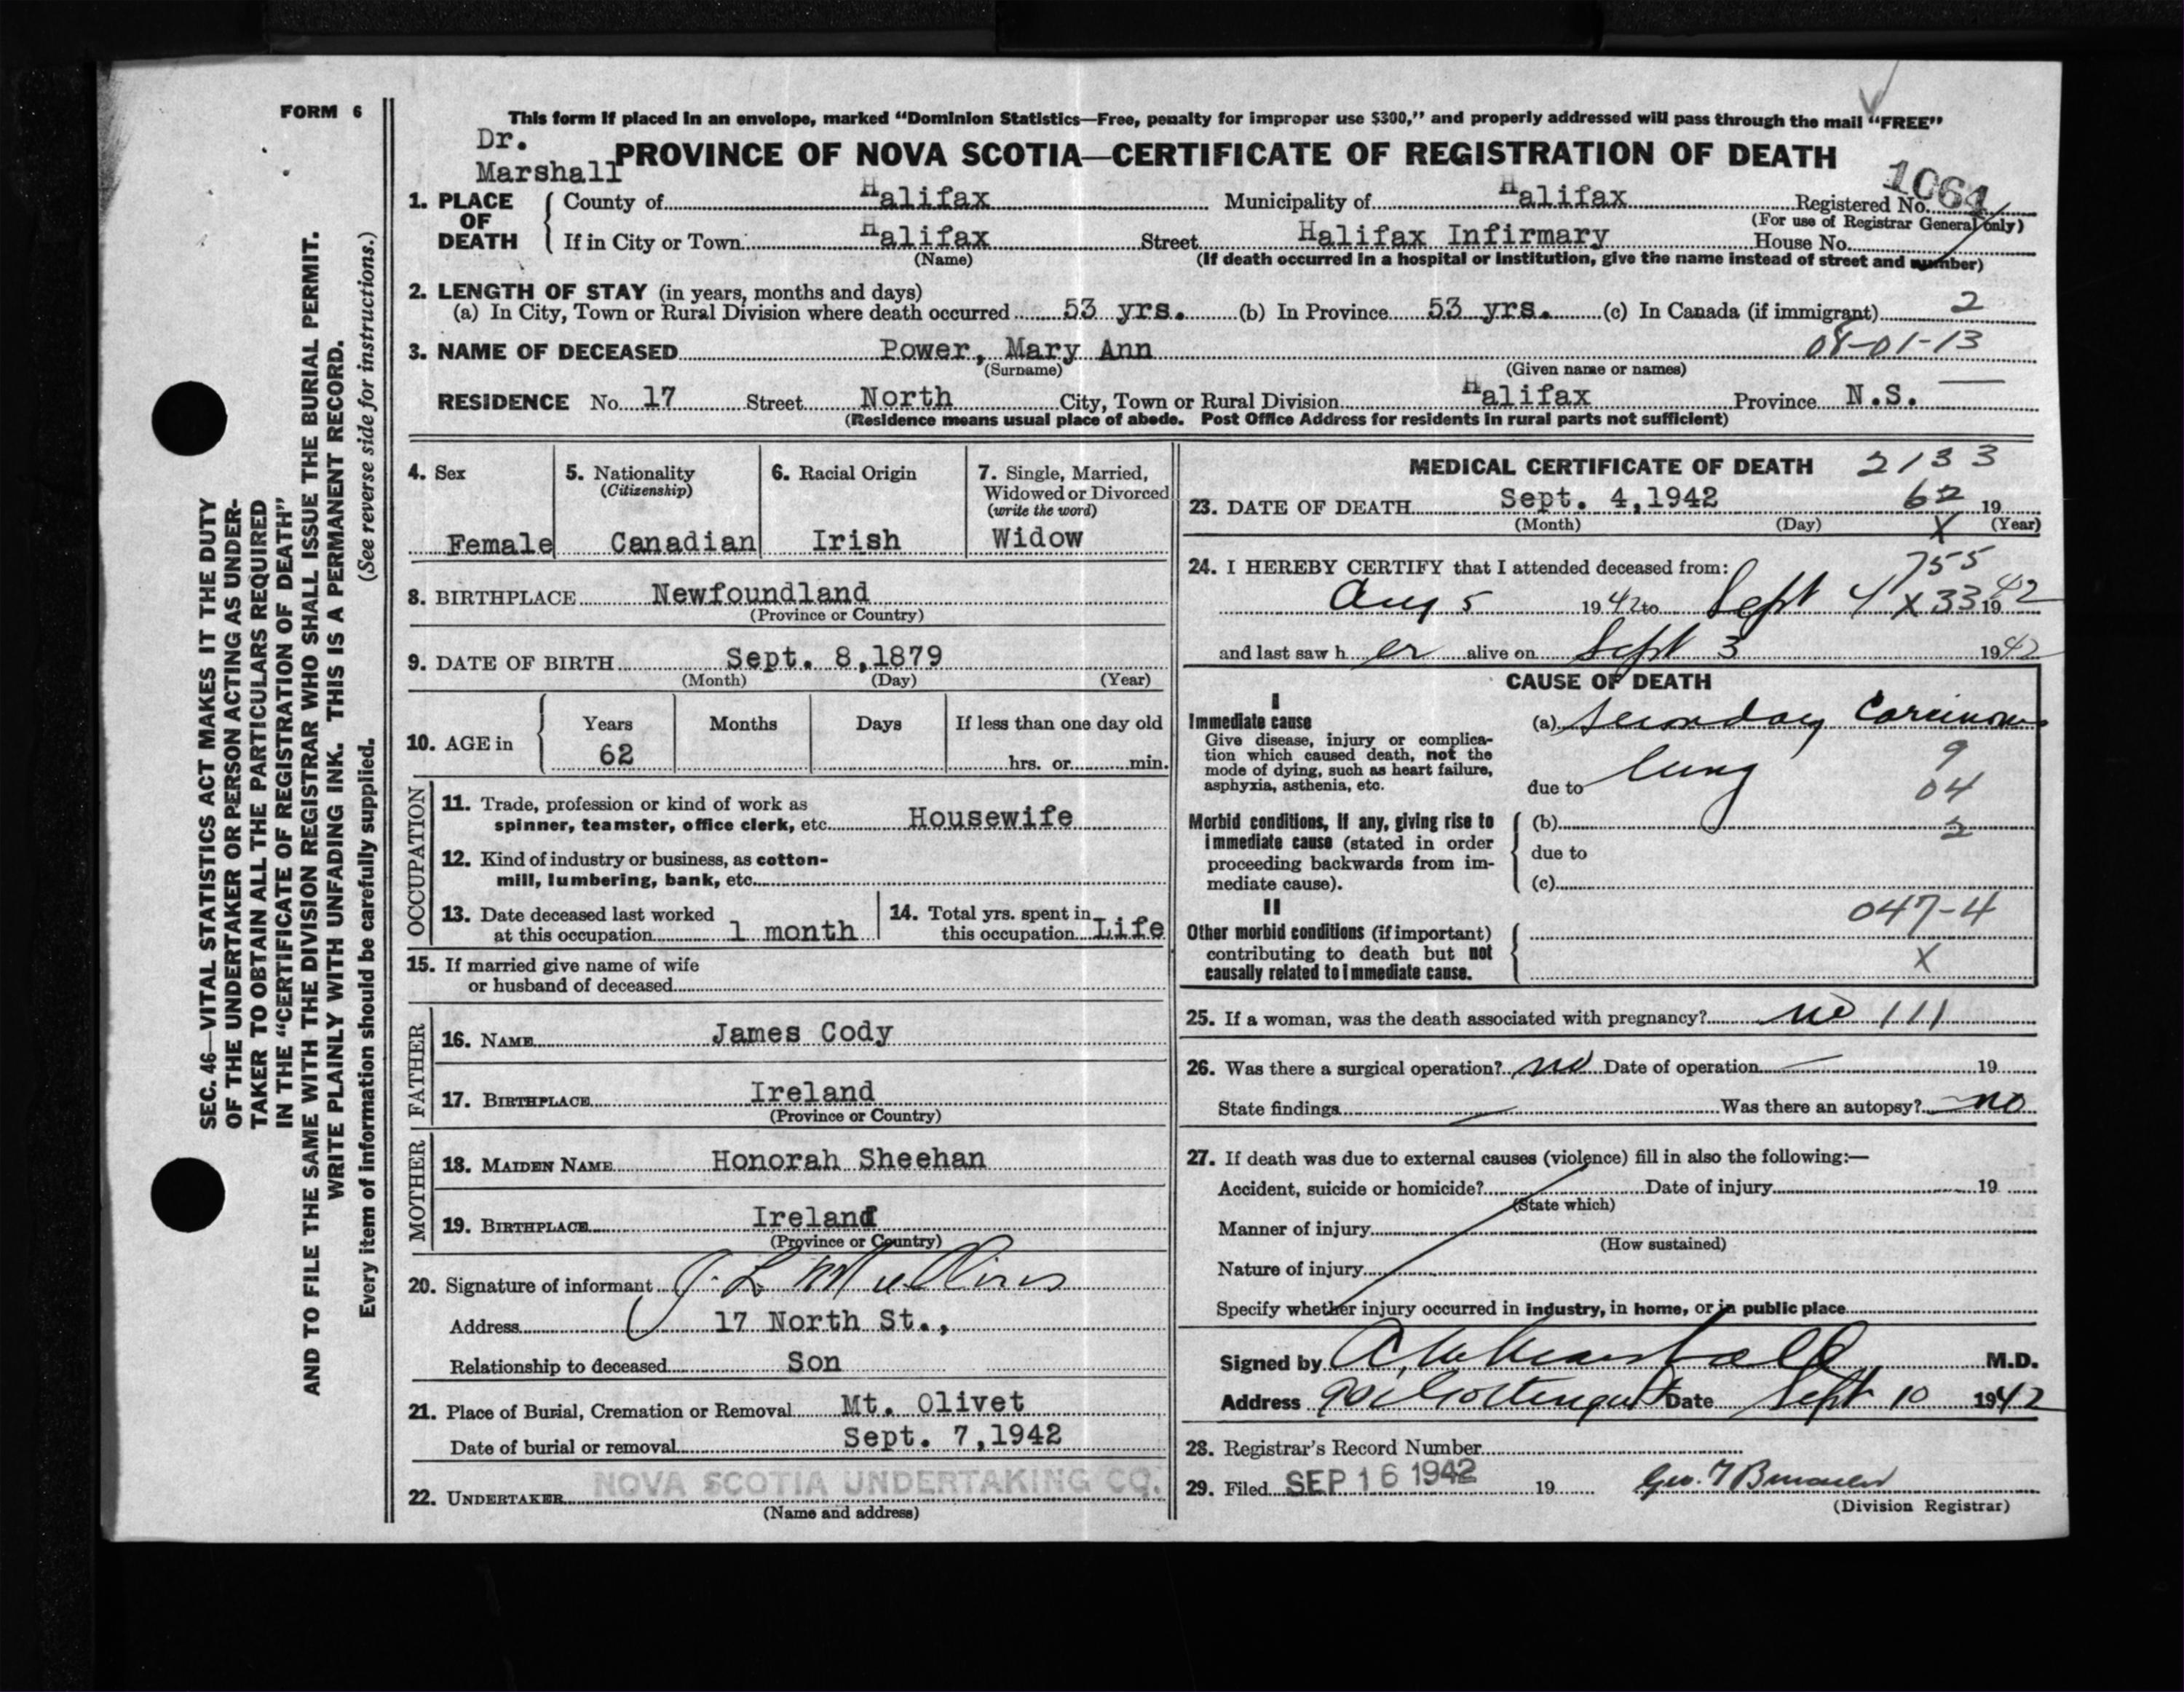 FORM 6
This form if placed in an envelope, marked “Dominion Statistics—Free, penalty for improper use $300,” and properly addressed will pass through the mail “FREE”
Dr.
Marshall
PROVINCE OF NOVA SCOTIA—CERTIFICATE OF REGISTRATION OF DEATH
1064
1. PLACE OF DEATH
County of Halifax Municipality of Halifax Registered No.
(For use of Registrar General only)
If in City or Town Halifax Street Halifax Infirmary House No.
(Name) (If death occurred in a hospital or institution, give the name instead of street and number)
2. LENGTH OF STAY (in years, months and days)
(a) In City, Town or Rural Division where death occurred 53 yrs. (b) In Province 53 yrs. (c) In Canada (if immigrant) 2
3. NAME OF DECEASED Power, Mary Ann 08-01-13
(Surname) (Given name or names)
RESIDENCE No. 17 Street North City, Town or Rural Division Halifax Province N.S.
(Residence means usual place of abode. Post Office Address for residents in rural parts not sufficient)
4. Sex
Female
5. Nationality
(Citizenship)
Canadian
6. Racial Origin
Irish
7. Single, Married,
Widowed or Divorced
(write the word)
Widow
8. BIRTHPLACE Newfoundland
(Province or Country)
9. DATE OF BIRTH Sept. 8,1879
(Month) (Day) (Year)
10. AGE in
Years Months Days If less than one day old
62 hrs. or min.
OCCUPATION
11. Trade, profession or kind of work as
spinner, teamster, office clerk, etc. Housewife
12. Kind of industry or business, as cotton-
mill, lumbering, bank, etc.
13. Date deceased last worked
at this occupation 1 month
14. Total yrs. spent in
this occupation Life
15. If married give name of wife
or husband of deceased
FATHER
16. NAME James Cody
17. BIRTHPLACE Ireland
(Province or Country)
MOTHER
18. MAIDEN NAME Honorah Sheehan
19. BIRTHPLACE Ireland
(Province or Country)
20. Signature of informant J. L. Mullins
Address 17 North St.,
Relationship to deceased Son
21. Place of Burial, Cremation or Removal Mt. Olivet
Date of burial or removal Sept. 7,1942
22. UNDERTAKER NOVA SCOTIA UNDERTAKING CO.
(Name and address)
MEDICAL CERTIFICATE OF DEATH 2133
23. DATE OF DEATH Sept. 4,1942 62 19
(Month) (Day) X (Year)
24. I HEREBY CERTIFY that I attended deceased from: 755
Aug 5 1942 to Sept 4 X33 1942
and last saw h er alive on Sept 3 1942
CAUSE OF DEATH
I
Immediate cause
Give disease, injury or complica-
tion which caused death, not the
mode of dying, such as heart failure,
asphyxia, asthenia, etc.
(a) Secondary Carcinoma
9
due to lung 04
Morbid conditions, if any, giving rise to
immediate cause (stated in order
proceeding backwards from im-
mediate cause).
(b) 2
due to
(c)
II
047-4
Other morbid conditions (if important)
contributing to death but not
causally related to immediate cause.
X
25. If a woman, was the death associated with pregnancy? no 111
26. Was there a surgical operation? no Date of operation — 19
State findings — Was there an autopsy? no
27. If death was due to external causes (violence) fill in also the following:—
Accident, suicide or homicide? Date of injury 19
(State which)
Manner of injury
(How sustained)
Nature of injury
Specify whether injury occurred in industry, in home, or in public place
Signed by Marshall M.D.
Address Date Sept 10 1942
28. Registrar's Record Number
29. Filed SEP 16 1942 19 Geo.
(Division Registrar)
SEC. 46—VITAL STATISTICS ACT MAKES IT THE DUTY
OF THE UNDERTAKER OR PERSON ACTING AS UNDER-
TAKER TO OBTAIN ALL THE PARTICULARS REQUIRED
IN THE “CERTIFICATE OF REGISTRATION OF DEATH”
AND TO FILE THE SAME WITH THE DIVISION REGISTRAR WHO SHALL ISSUE THE BURIAL PERMIT.
WRITE PLAINLY WITH UNFADING INK. THIS IS A PERMANENT RECORD.
Every item of information should be carefully supplied. (See reverse side for instructions.)